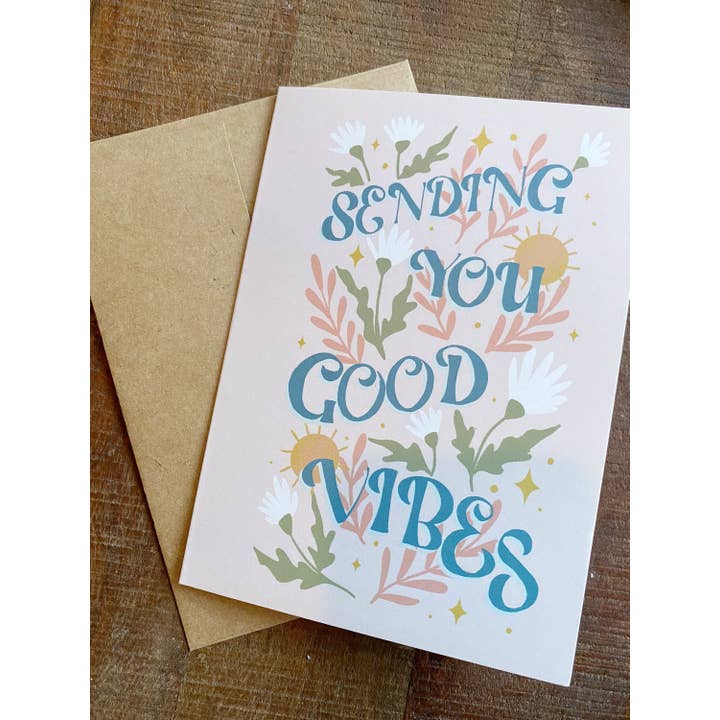 SENDING
YOU
GOOD
VIBES